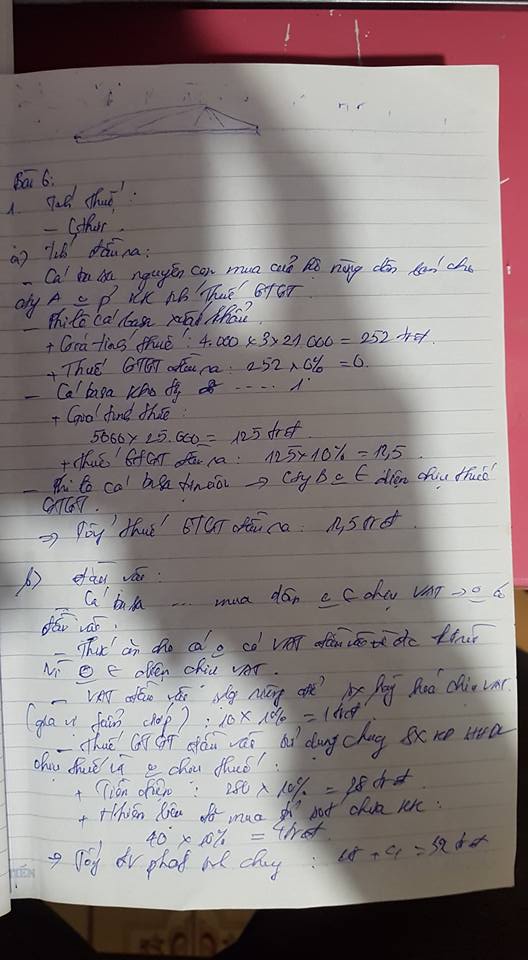 Bài 6:
1. Tính thuế:
- Gthức.
a) Tính đầu ra:
- Cá ba sa nguyên con mua của hộ nông dân bán cho
cty A ko p' KK nb' thuế GTGT.
- Phi lê cá basa xuất khẩu
+ Giá tính thuế: 4.000 x 3 x 21.000 = 252 trđ.
+ Thuế GTGT đầu ra: 252 x 0% = 0.
- Cá basa kho tộ ..... 1
+ Giá tính thuế:
5000 x 25.000 = 125 trđ.
+ thuế GTGT đầu ra: 125 x 10% = 12,5.
- Phi lê cá basa → Cty B ko ∈ diện chịu thuế
GTGT.
⇒ Tổng thuế GTGT đầu ra: 12,5 trđ.
b) đầu vào:
Cá basa ... mua dân ko ∈ chịu VAT → ko có
đầu vào.
- Thức ăn cho cá ko có VAT đầu vào đc ktrừ
Vì ko ∈ diện chịu VAT.
- VAT đầu vào dùng riêng để sx hàng hoá chịu VAT.
(gia vị, ): 10 x 10% = 1 trđ
- Thuế GTGT đầu vào sử dụng chung SX KD HHDV
chịu thuế và ko chịu thuế:
+ Tiền điện: 280 x 10% = 28 trđ.
+ Nhiên liệu đã mua bỏ sót chưa KK:
40 x 10% = 4 trđ.
⇒ Tổng ĐV phân bổ chung: 28 + 4 = 32 trđ